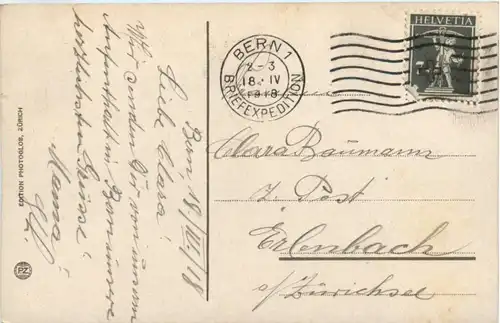 Bern, 18./IV./18
Liebe Clara!
Wir senden Dir von unserm
Aufenthalt in Bern unsere
herzlichsten Grüsse!
Mama
EDITION PHOTOGLOB, ZÜRICH
PZ
BERN 1
2-3
18. IV
1918
BRIEFEXPEDITION
HELVETIA
Clara Baumann
z. Post
Erlenbach
a/Zürichsee